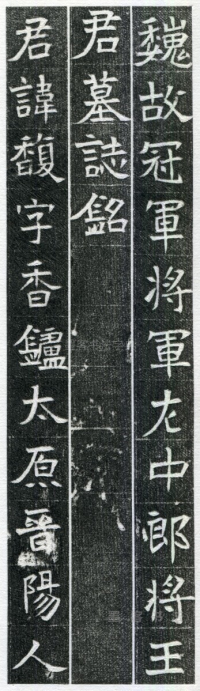 魏故冠軍将軍左中郎将王
君墓誌銘
君諱馥字香鑪太原晉陽人